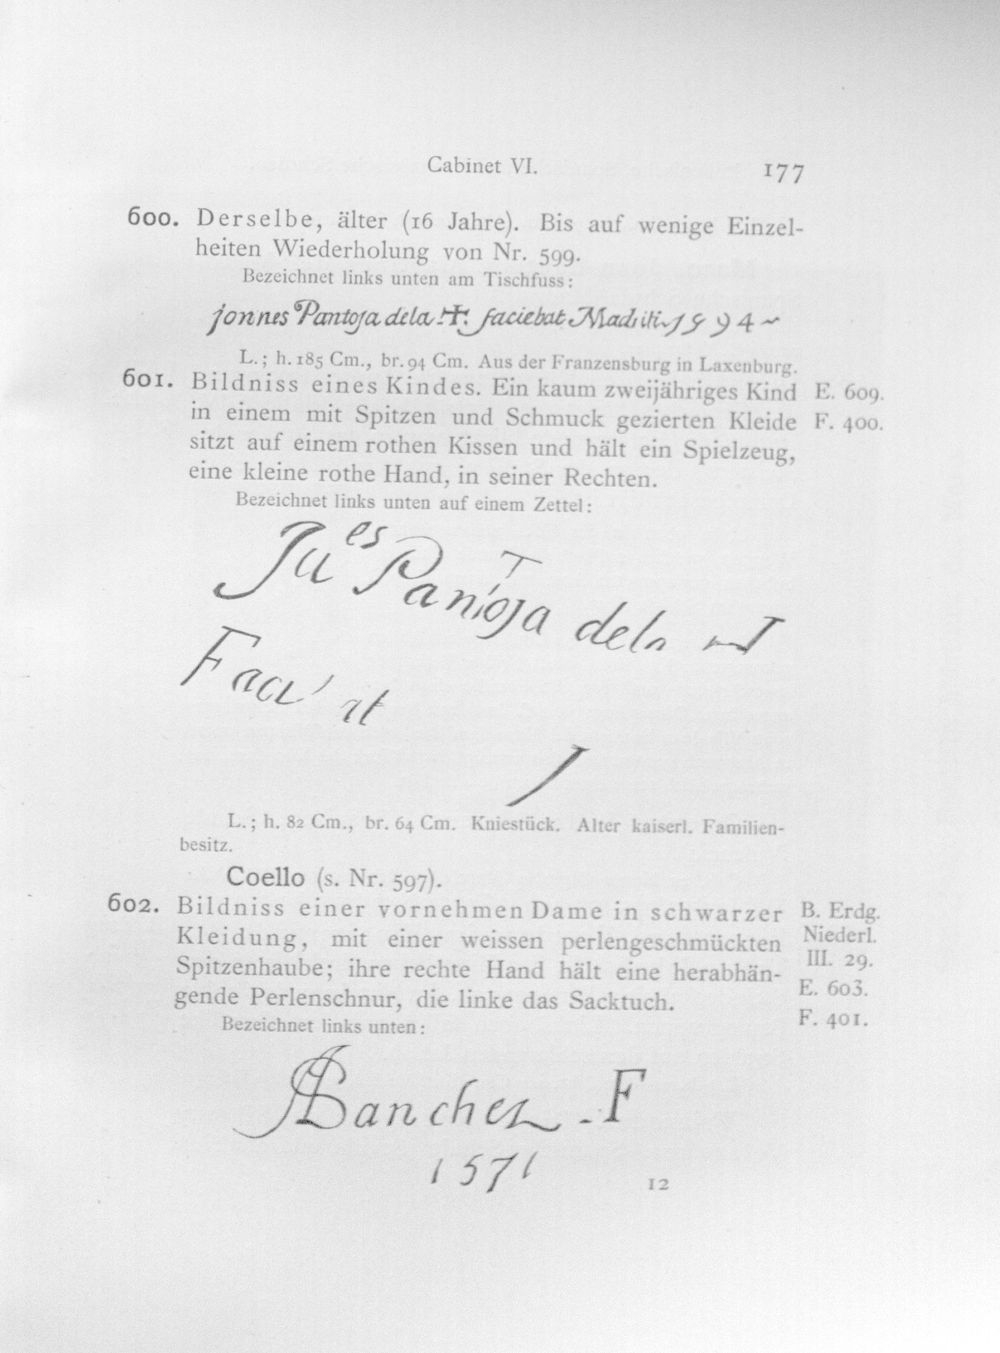 Cabinet VI. 177
600. Derselbe, älter (16 Jahre). Bis auf wenige Einzel-
heiten Wiederholung von Nr. 599.
Bezeichnet links unten am Tischfuss:
jonnes Pantoja dela ✝. faciebat Madriti 1594
L.; h. 185 Cm., br. 94 Cm. Aus der Franzensburg in Laxenburg.
601. Bildniss eines Kindes. Ein kaum zweijähriges Kind E. 609.
in einem mit Spitzen und Schmuck gezierten Kleide F. 400.
sitzt auf einem rothen Kissen und hält ein Spielzeug,
eine kleine rothe Hand, in seiner Rechten.
Bezeichnet links unten auf einem Zettel:
Ju es Pantoja dela
Faci it
L.; h. 82 Cm., br. 64 Cm. Kniestück. Alter kaiserl. Familien-
besitz.
Coello (s. Nr. 597).
602. Bildniss einer vornehmen Dame in schwarzer B. Erdg.
Kleidung, mit einer weissen perlengeschmückten Niederl.
Spitzenhaube; ihre rechte Hand hält eine herabhän- III. 29.
gende Perlenschnur, die linke das Sacktuch. E. 603.
Bezeichnet links unten: F. 401.
ASanchez - F
1571
12